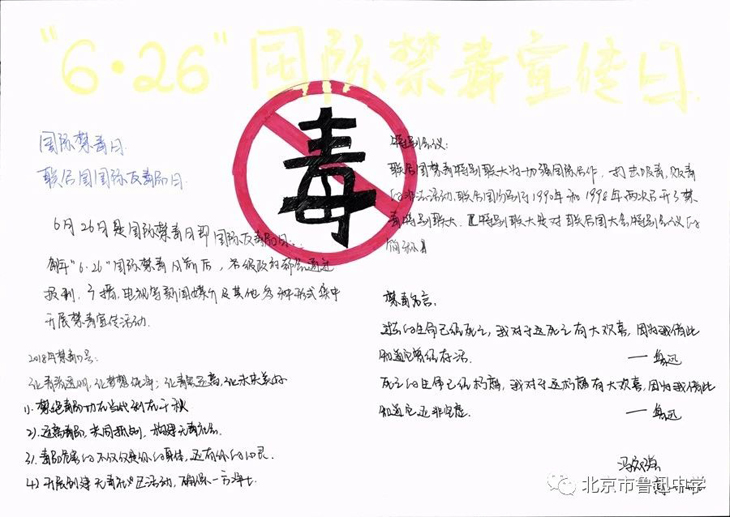 "6·26"国际禁毒宣传日
毒
国际禁毒日
联合国国际反毒品日
6月26月是国际禁毒日即国际反毒品日...
每年"6·26"国际禁毒日前后,各级政府都会通过
报刊、广播、电视等新闻媒介及其他多种形式集中
开展禁毒宣传活动.
2018年禁毒口号:
让青春透明,让梦想纯净;让毒品远离,让未来美好
1). 禁绝毒品功在当代利在千秋
2). 远离毒品,共同抵制,构建无毒社会.
3). 毒品危害的不仅仅是你的身体,还有你的心灵.
4). 开展创建无毒社区活动,确保一方净土.
特别会议:
联合国禁毒特别联大为加强国际合作,打击吸毒、贩毒
的非法活动,联合国分别于1990年和1998年两次召开了禁
毒特别联大.特别联大是对联合国大会特别会议的
简称
禁毒名言:
过去的生命已经死亡,我对于这死亡有大欢喜,因为我借此
知道它曾经存活. ——鲁迅
死亡的生命已经朽腐,我对于这朽腐有大欢喜,因为我借此
知道它还非空虚. ——鲁迅
北京市鲁迅中学